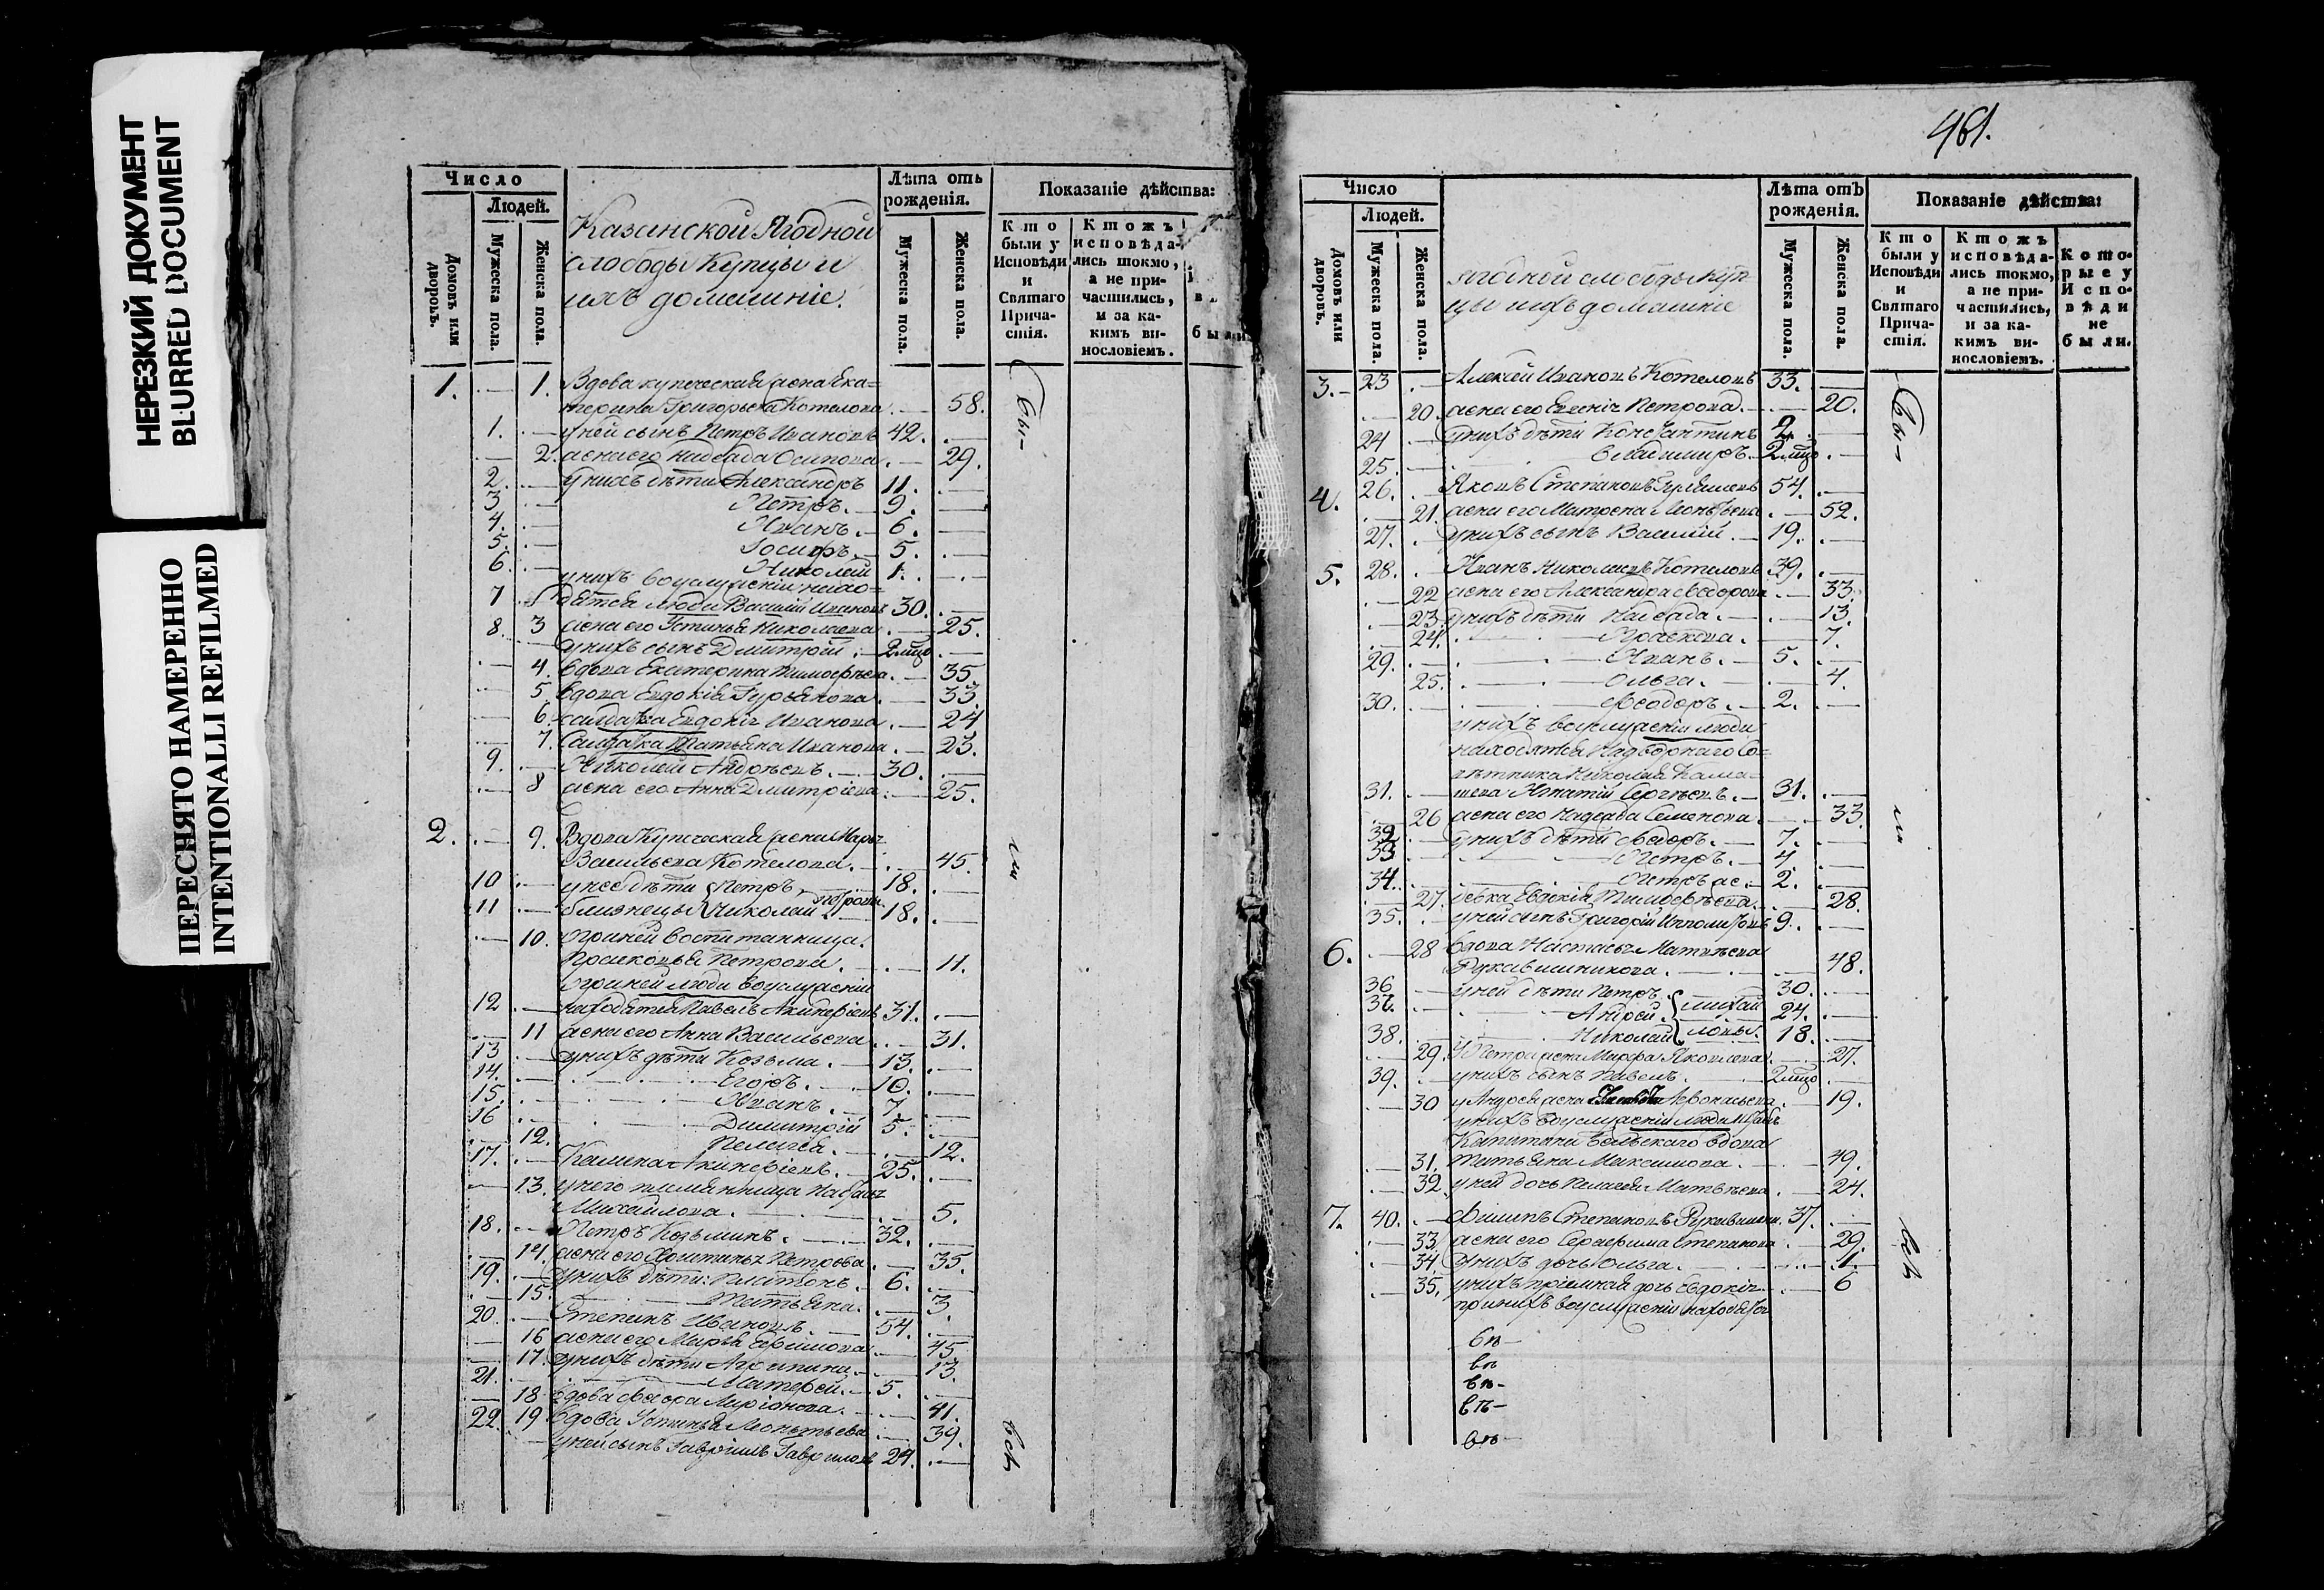 НЕРЕЗКИЙ ДОКУМЕНТ
BLURRED DOCUMENT
ПЕРЕСНЯТО НАМЕРЕННО
INTENTIONALLI REFILMED
Число
Людей.
Домовъ или дворовъ.
Мужеска пола.
Женска пола.
Казанской Ягодной
слободы Купцы и
ихъ домашніе.
Лѣта отъ рожденія.
Мужеска пола.
Женска пола.
Показаніе дѣйства:
Кто были у Исповѣди и Святаго Причастія.
Ктожъ исповѣдались токмо, а не причастились, и за какимъ винословіемъ.
1. 1. Вдова купеческая жена Ека=
терина Григорьева Котелова 58.
1. у ней сынъ Петръ Ивановъ 42.
2. жена его Надежда Осипова 29.
2. у нихъ дѣти Александръ 11.
3. Петръ. 9.
4. Иванъ. 6.
5. Іосифъ. 5.
6. Николай 1.
у нихъ въ услуженіи нахо=
7 дятся люди Василій Ивановъ 30.
3 жена его Устинья Николаева 25.
8. у нихъ сынъ Дмитрій 2 мцо
4. вдова Екатерина Тимофѣева 35
5. вдова Евдокія Гурьянова 33.
6. солдатка Евдокія Иванова 24
7. Солдатка Татьяна Иванова 23.
9. Николай Андрѣевъ 30.
8 жена его Анна Дмитріева 25.
2. 9. Вдова Купеческая жена Марья
Васильева Котелова. 45.
10 у нее дѣти Петръ 18.
Петровы
11 близнецы Николай 18.
10. при ней воспитанница
Прасковья Петрова. 11.
при ней люди въ услуженіи
12 находятся Павелъ Акинфіевъ 31.
11 жена его Анна Васильева 31.
13 у нихъ дѣти Козьма. 13.
14. Егоръ. 10.
15. Иванъ. 7.
16 Димитрій 5.
12. Пелагея. 12.
17. Акинфіевъ. 25.
13. у него племянница
Михайлова. 5.
18. Петръ Козьминъ. 32.
14. жена его Петрова 35.
19. у нихъ дѣти: Платонъ. 6.
15. Татьяна. 3.
20. Степанъ Ивановъ 54.
16 жена его Марья Ефимова 45
17. у нихъ дѣти Агрипина. 13.
21. Матфей. 5.
18 вдова 41.
19 вдова Устинья Леонтьева 39.
22. у ней сынъ Гавріилъ Гавриловъ 24.
Бы-
ли
всѣ
461.
Число
Людей.
Домовъ или дворовъ.
Мужеска пола.
Женска пола.
Ягодной слободы куп=
цы и ихъ домашніе
Лѣта отъ рожденія.
Мужеска пола.
Женска пола.
Показаніе дѣйства:
Кто были у Исповѣди и Святаго Причастія.
Ктожъ исповѣдались токмо, а не причастились, и за какимъ винословіемъ.
Которые у Исповѣди не были.
3. 23 Алексѣй Ивановъ Котеловъ 33.
20. жена его Евгенія Петрова. 20.
24 у нихъ дѣти Константинъ 2
25. Владимиръ 2 мцо
4. 26. Яковъ Степановъ 54.
21. жена его Матрена Леонтьева 52.
27. у нихъ сынъ Василій. 19.
5. 28. Иванъ Николаевъ Котеловъ 39.
22 жена его Александра Ѳедорова 33.
23. у нихъ дѣти Надежда. 13.
24. Прасковья. 7.
29. Иванъ. 5.
25. Ольга. 4.
30. Ѳеодоръ. 2.
у нихъ въ услуженіи люди
находятся Надворнаго Со=
вѣтника Николая
31. Игнатій Сергѣевъ. 31.
26 жена его Надежда Семенова 33.
32 у нихъ дѣти Ѳедоръ. 7.
33. Петръ. 4
34. Петръ же 2.
27. девка Евдокія Тимофѣева 28.
35. у ней сынъ Григорій Ипполитовъ 9.
6. 28 вдова Настасья Матвѣева
Рукавишникова. 48.
36 у ней дѣти Петръ 30.
37. Андрей Михай 24.
38. Николай ловы. 18.
29. У Петра жена Марфа Яковлева 27.
39. у нихъ сынъ Павелъ. 2 мцо
30 у Андрея жена Афонасьева 19.
у нихъ въ услуженіи люди
Капитана вдова
31. Татьяна Максимова. 49.
32. у ней дочь Пелагея Матвѣева 24.
7. 40. Филипъ Степановъ Рукавишни. 37.
33. жена его Серафима Степанова 29.
34. у нихъ дочь Ольга. 1.
35. у нихъ пріемная дочь Евдокія 6
при нихъ въ услуженіи находятся
Бы-
ли
всѣ